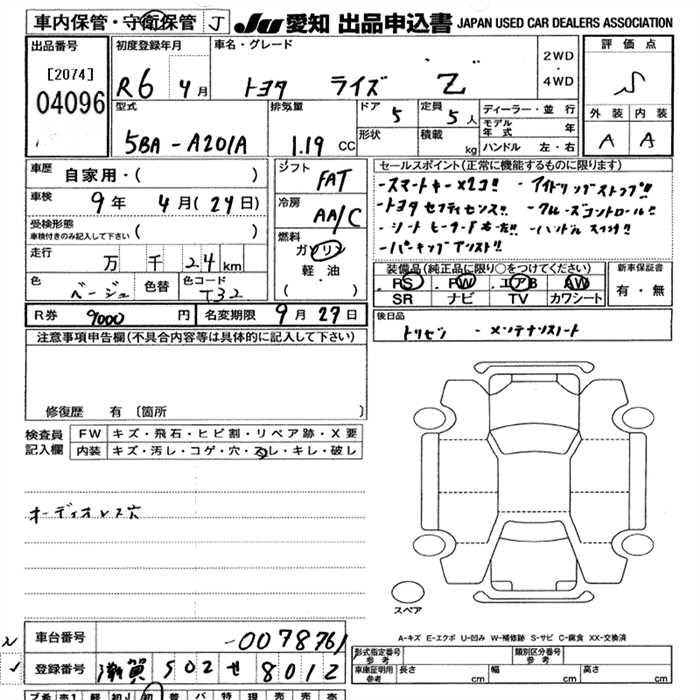 車内保管・守衛保管 J JU 愛知 出品申込書 JAPAN USED CAR DEALERS ASSOCIATION
出品番号 初度登録年月 車名・グレード 2WD・4WD 評価点
[2074]
04096 R6 4月 トヨタ ライズ Z S
型式 排気量 ドア 5 定員 5人 ディーラー・並行 外装 内装
5BA-A201A 1.19 CC 形状 積載 kg モデル年式 年 A A
ハンドル 左・右
車歴 自家用・( ) シフト FAT セールスポイント(正常に機能するものに限ります)
車検 9年 4月(29日) 冷房 AA/C -スマートキー×2コ!! -アイドリングストップ!!
受検形態 -トヨタセフティセンス!! -クルーズコントロール!!
車検付きのみ記入して下さい ( ) 燃料 -シートヒーター -ハンドル
走行 万 千 24km ガソリン 軽・油 ( ) -パーキングアシスト!!
色 ベージュ 色替 色コード T32 装備品(純正品に限り○をつけてください) 新車保証書
PS PW エアB AW 有・無
SR ナビ TV カワシート
R券 9000円 名変期限 9月29日 後日品
トリセツ -メンテナンスノート
注意事項申告欄(不具合内容等は具体的に記入して下さい)
修復歴 有 〔箇所 〕
検査員記入欄 FW キズ・飛石・ヒビ割・リペア跡・X要
内装 キズ・汚レ・コゲ・穴・スレ・キレ・破レ
オーディオレス穴
スペア
A-キズ E-エクボ U-凹み W-補修跡 S-サビ C-腐食 XX-交換済
車台番号 -0078761
登録番号 滋賀 502 せ 8012
形式指定番号 参考 類別区分番号 参考
車庫証明用 参考 長さ cm 幅 cm 高さ cm